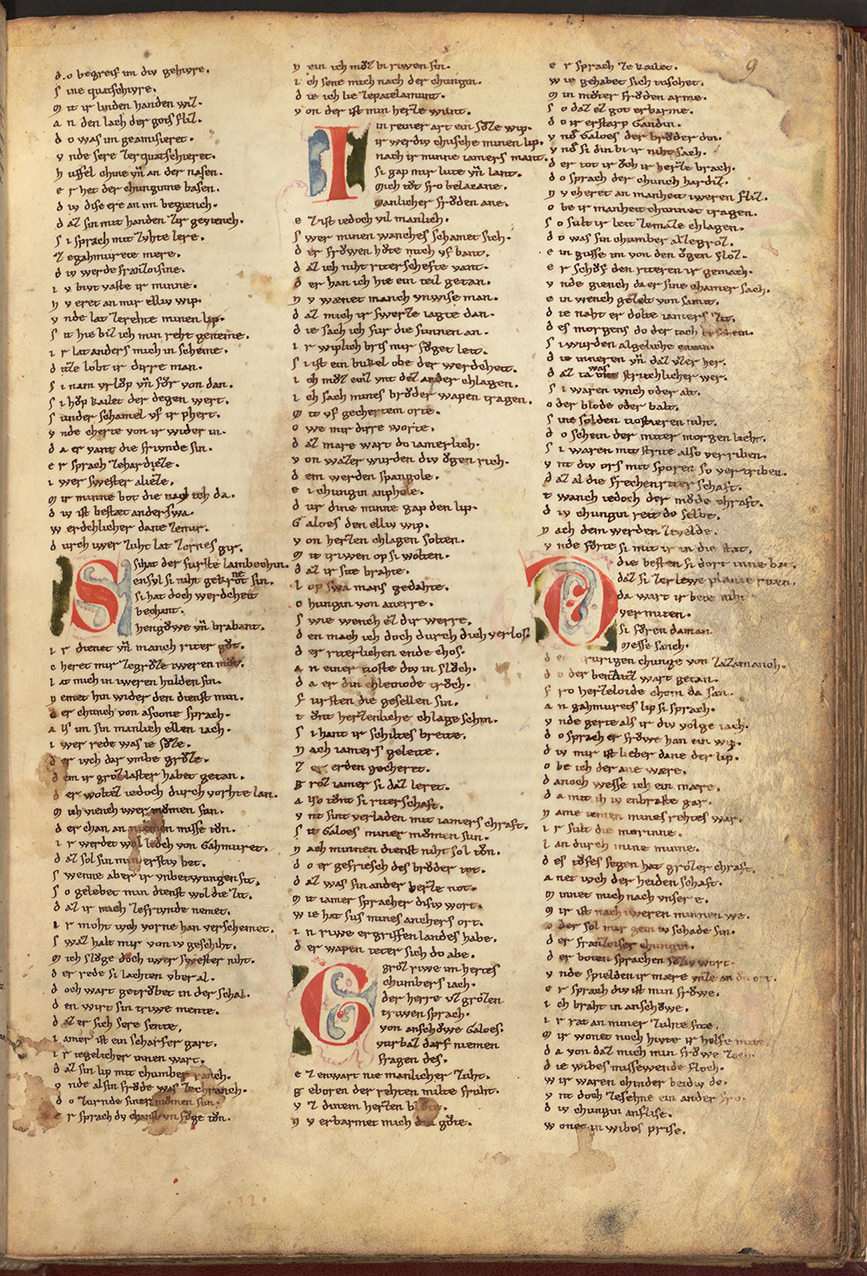 9
d o begreif im div gehivre.
s ine quatschivre.
m it ir linden handen wiz.
a n den lach der gots fliz.
d o was im geamisieret.
v nde sere zerquatschieret.
h uffel chine vñ an der nasen.
e r het der chuneginne basen.
d iv dise ere an im begiench.
d az sin mit handen zir geviench.
s i sprach mit zvhte lere.
z egahmurete mere.
d iv werde franzoisine.
i v bivt vaste ir minne.
n v eret an mir elliv wip.
v nde lat zerehte minen lip.
s it hie biz ich min reht geneme.
i r lat anders mich in scheme.
d itze lobt ir dirre man.
s i nam vrlop vñ fvr von dan.
s i hvp kailet der degen wert.
s under schamel vf ir phert.
v nde cherte von ir wider in.
d a er vant die frivnde sin.
e r sprach zehardieze.
i wer swester alieze.
m ir minne bot die nam ich da.
d iv ist bestatet anderswa.
w erdchlicher dane zemir.
d urch iwer zuht lat zornes gir.
S i hat der furste lambechin.
ensvl si niht gekronet sin.
si hat doch werdcheit
bechant.
hengowe vñ brabant.
i r dienet vñ manch riter gvt.
c heret mir zegrvze iweren mvt.
l at mich in iweren hulden sin.
v emet hin wider den dienst min.
d er chunch von ascone sprach.
a ls im sin manlich ellen iach.
i wer rede was ie svze.
d er ivch dar vmbe grvze.
d em ir groz laster habet getan.
d er woltez iedoch durch vorhte lan.
m ich viench iwer mvmen sun.
d er chan an niemen misse tvn.
i r werdet wol ledech von Gahmuret.
d az sol sin min erstiv bet.
s wenne aber ir vnbetwungen sit.
s o gelebet min dienst wol die zit.
d az ir mich zefrivnde nemet.
i r moht ivch vorne han verschemet.
s waz halt mir von iv geschiht.
m ich slvge doch iwer swester niht.
d er rede si lachten vberal.
d och wart getrvbet in der schal.
d en wirt sin triwe mente.
d az er sich sere sente.
i amer ist ein scharfer gart.
i r iegelicher innen wart.
d az sin lip mit chumber ranch.
v nde al sin frvde was zechranch.
d o zurnde siner mvmen sun.
e r sprach dv chanst vn fvge tvn.
n ein ich mvz bi riwen sin.
i ch sene mich nach der chungin.
d ie ich lie zepatelamunt.
v on der ist min herze wunt.
I n reiner art ein svze wip.
ir werdiv chiusche minen lip.
nach ir minne iamers mant.
si gap mir lute vñ lant.
mich tvt fro belacane.
manlicher frvden ane.
e z ist iedoch vil manlich.
s wer minen wanches schamet sich.
d er frowen hvte mich vf bant.
d az ich niht riterschefte vant.
d er han ich hie ein teil getan.
n v waenet manch vnwise man.
d az mich ir swerze iagte dan.
d ie sach ich fur die sunnen an.
i r wiplich bris mir fvget leit.
s i ist ein bukel obe der werdcheit.
i ch mvz einz vnt dez ander chlagen.
i ch sach mines brvder wapen tragen.
m it vf gechertem orte.
o we mir dirre worte.
d az mare wart do iamerlich.
v on wazer wurden div ogen rich.
d em werden spangole.
e i chungin anphole.
d ur dine minne gap den lip.
G aloes den elliv wip.
v on herzen chlagen solten.
m it triwen op si wolten.
d az ir site brahte.
l op swa mans gedahte.
c hungin von averre.
s wie wench ez dir werre.
d en mach ich doch durch dich verlos.
d er riterlichen ende chos.
a n einer tioste div in slvch.
d a er din chleinode trvch.
f ursten die gesellen sin.
t vnt herzenliche chlage schin.
s i hant ir schiltes breite.
n ach iamers geleite.
z er erden gecheret.
g roz iamer si daz leret.
a lso tvnt si riterschaft.
v nt sint verladen mit iamers chraft.
s it Galoes miner mvmen sun.
n ach minnen dienst niht sol tvn.
d o er gefriesch des brvder tot.
d az was sin ander herze not.
m it iamer spracher disiv wort.
w ie hat sus mines anchers ort.
i n riwe ergriffen landes habe.
d er wapen teter sich do abe.
G roz riwe im hertes
chumbers iach.
der herre vz grozen
triwen sprach.
von anschowe Galoes.
vurbaz darf niemen
fragen des.
e z enwart nie manlicher zuht.
g eboren der rehten milte fruht.
v z dinem herzen blvte.
n v erbarmet mich din gvte.
e r sprach ze kailet.
w ie gehabet sich tschoet.
m in mvter frvden arme.
s o daz ez got erbarme.
d o ir erstarp Gandin.
v nd Galoes der brvder din.
v nd si din bi ir niht sach.
d er tot ir ovch ir herze brach.
d o sprach der chunch hardiz.
n v cheret an manheit iweren fliz.
o be ir manheit chunnet tragen.
s o sult ir leit zemaze chlagen.
d o was sin chumber alzegroz.
e in gusse im von den ogen floz.
e r schvf den riteren ir gemach.
v nde giench da er sine chamer sach.
e in wench gezelt von samit.
d ie naht er dolte iamers zit.
d es morgens do der tach erschein.
s i wurden algeliche enein.
d ie inneren vñ daz vzer her.
d az ta was stritchlicher wer.
s i waren ivnch oder alt.
o der blode oder balt.
s ine solden tiostieren niht.
d o schein der miter morgen lieht.
s i waren mit strite also verriben.
v nt div ors mit sporen so vertriben.
d az al die frechen riterschaft.
t wanch iedoch der mvde chraft.
d iv chungin reit do selbe.
n ach dem werden zevelde.
v nde fvrte si mit ir in die stat.
D ie besten si dort inne bat.
daz si zer lewe planie riten.
da wart ir bete niht
vermiten.
si fvren da man
messe sanch.
d em trurigen chunige von zazamanch.
d o der benedictz wart getan.
f ro herzeloide chom da san.
a n gahmurets lip si sprach.
v nde gerte als ir div volge iach.
d o sprach er frowe han ein wip.
d iv mir ist lieber dane der lip.
o be ich der ane waere.
d anoch wesse ich ein maere.
d a mit ih iv enbraste gar.
n ame iemen mines rehtes war.
i r sult die morinne.
l an durch mine minne.
d es tvfes segen hat grozer chraft.
a net ivch der heidenschaft.
m innet mich nach vnser e.
m ir ist nach iweren minnen we.
o der sol mir gein iv schade sin.
d er franzoiser chungin.
d er boten sprachen svziv wort.
v nde spielden ir maere vnze an den ort.
e r sprach div ist min frowe.
i ch braht in anschowe.
i r rat an miner zuhte site.
m ir wonet noch hivte ir helfe mite.
d a von daz mich min frowe zoch.
d ie wibes missewende floch.
w ir waren chinder beidiv do.
v nt doch zesehne ein ander fro.
d iv chungin anflise.
w onet in wibes prise.